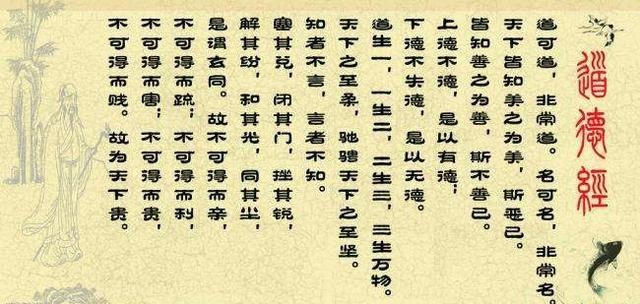 道德經
道可道，非常道。名可名，非常名。
天下皆知美之为美，斯恶已。
皆知善之为善，斯不善已。
上德不德，是以有德；
下德不失德，是以无德。
道生一，一生二，二生三，三生万物。
天下之至柔，驰骋天下之至坚。
知者不言，言者不知。
塞其兑，闭其门，挫其锐，
解其纷，和其光，同其尘，
是谓玄同。故不可得而亲，
不可得而疏；不可得而利，
不可得而害；不可得而贵，
不可得而贱。故为天下贵。